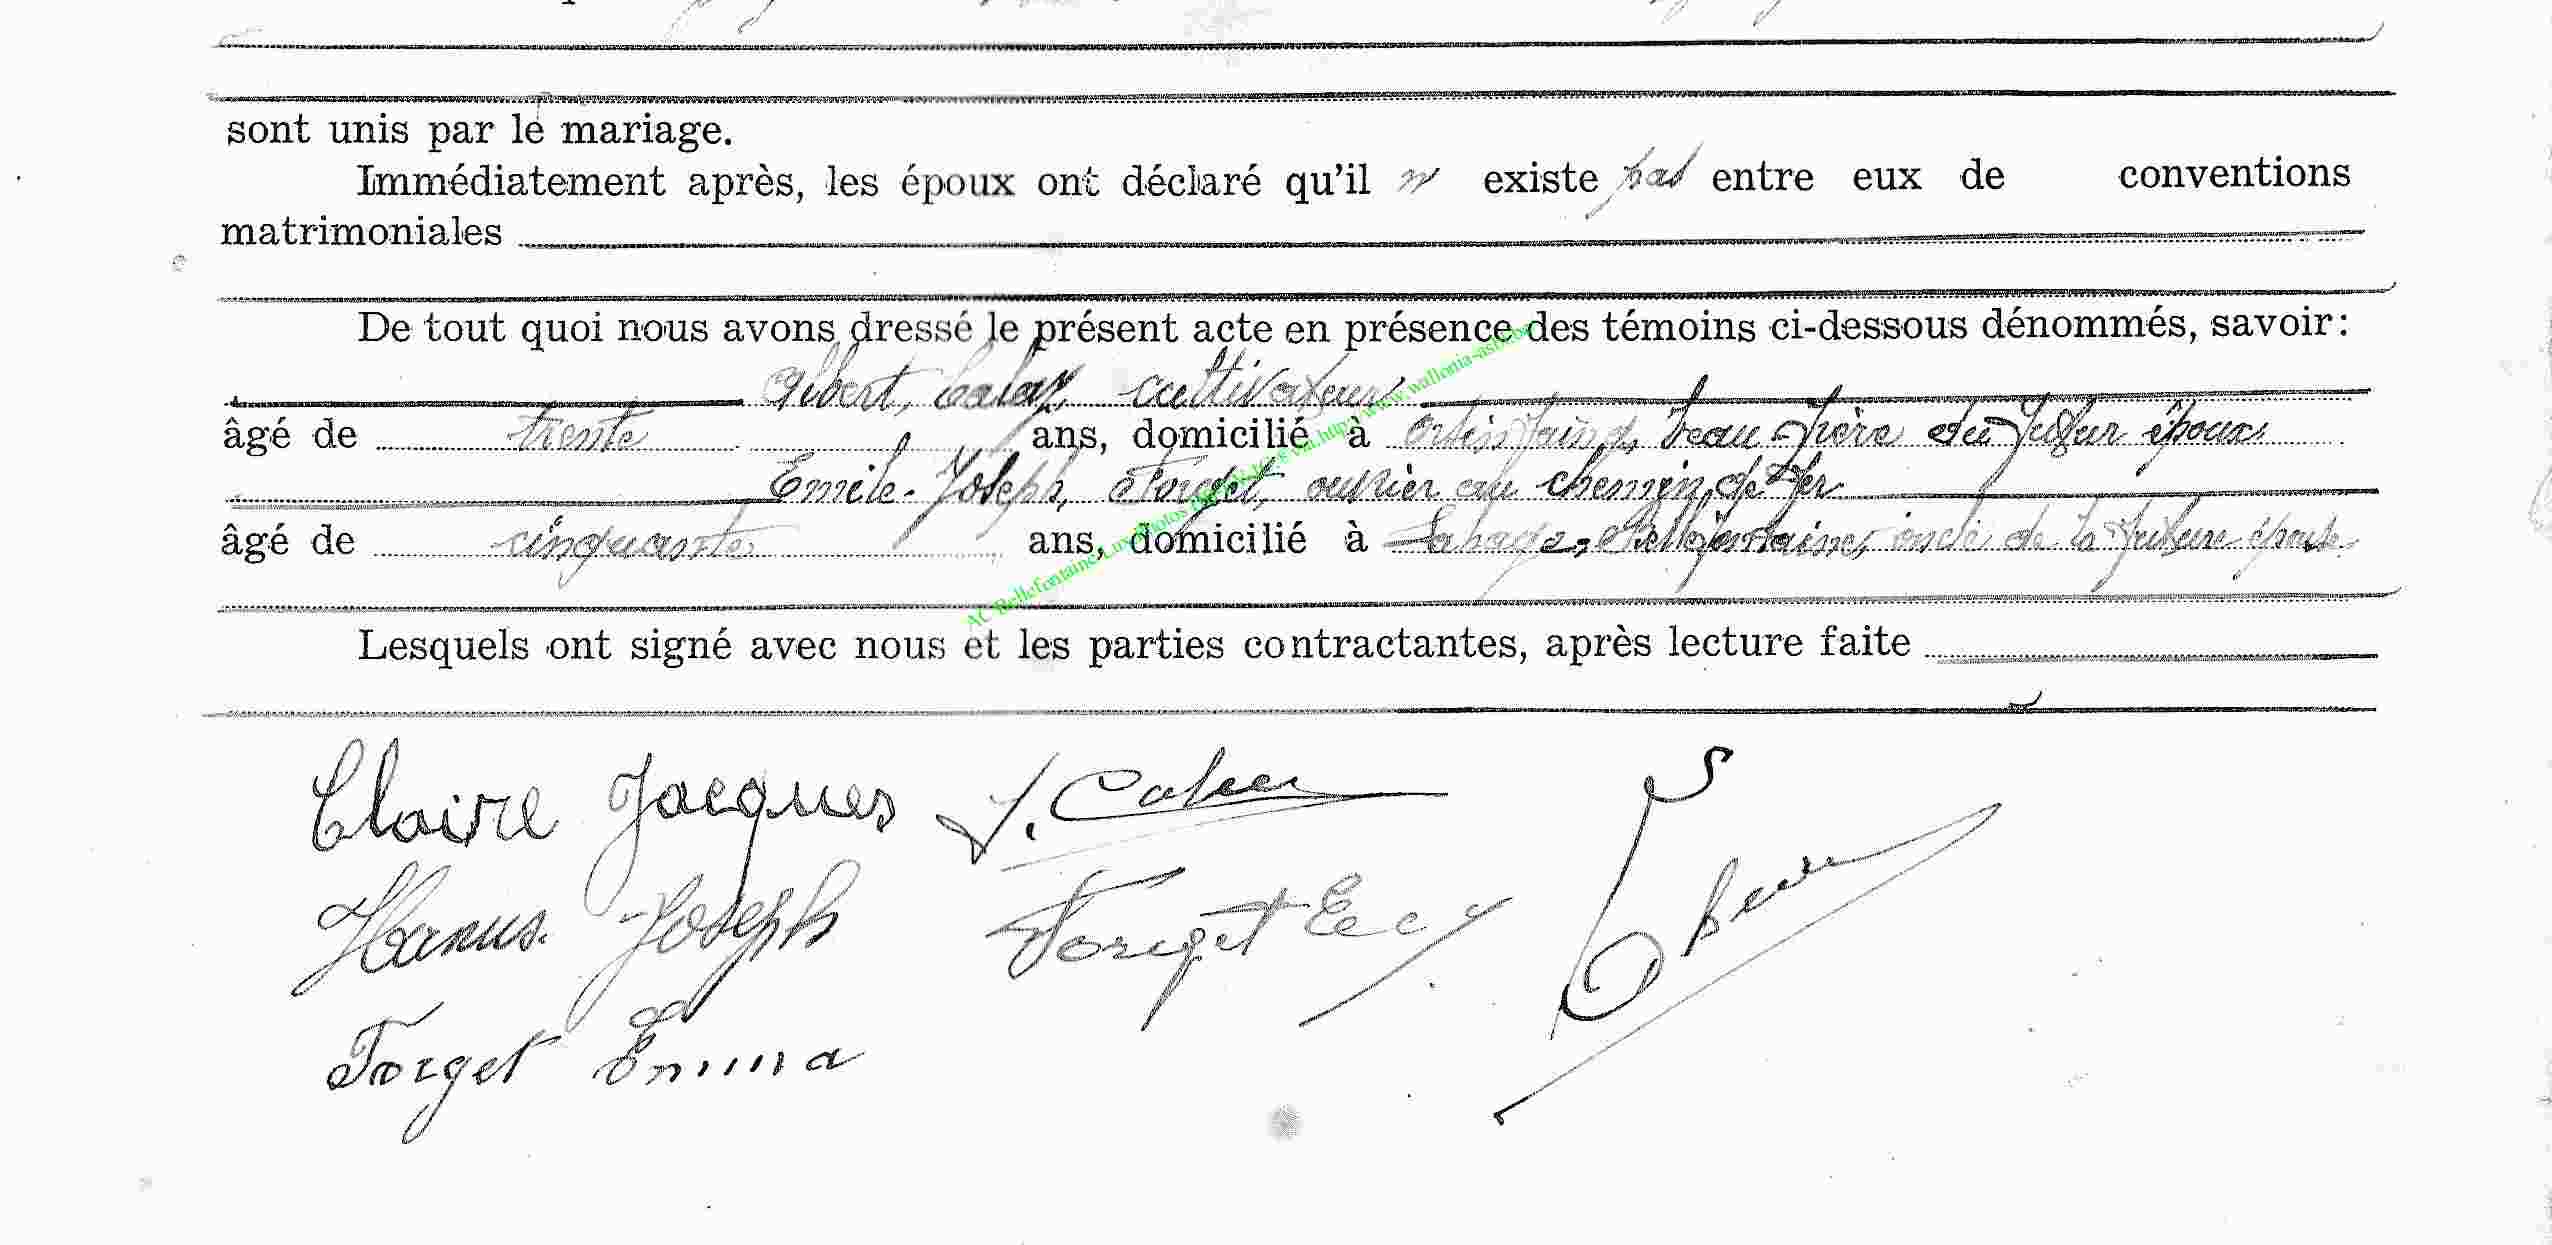 sont unis par le mariage.
Immédiatement après, les époux ont déclaré qu'il n' existe pas entre eux de conventions
matrimoniales
De tout quoi nous avons dressé le présent acte en présence des témoins ci-dessous dénommés, savoir:
Albert, cultivateur
âgé de trente ans, domicilié à beau-frère du futur époux
Emile-Joseph, Forget, ouvrier au chemin de fer
âgé de cinquante ans, domicilié à Lahage, Bellefontaine, oncle de la future épouse
Lesquels ont signé avec nous et les parties contractantes, après lecture faite
Claire Jacques J.
Hanus Joseph Forget
Forget Emma